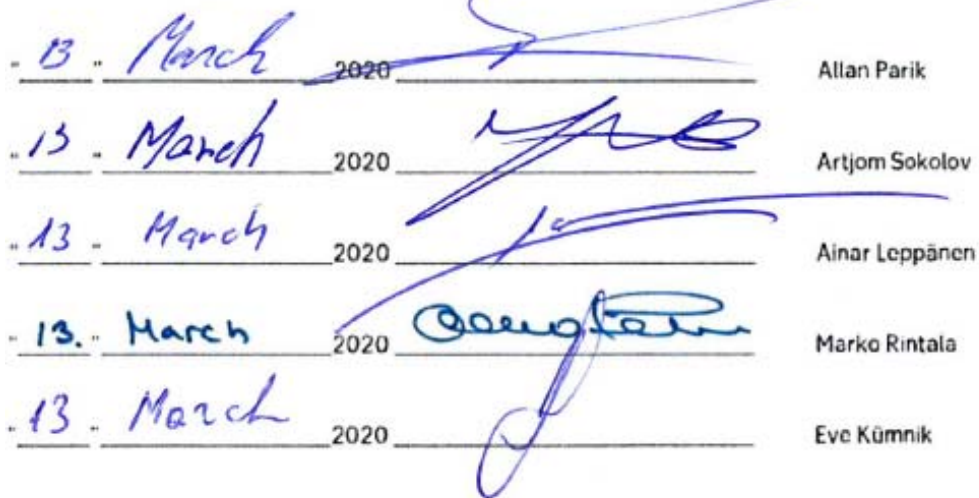 " 13 " March 2020 Allan Parik
" 13 " March 2020 Artjom Sokolov
" 13 " March 2020 Ainar Leppänen
" 13. " March 2020 Marko Rintala
" 13 " March 2020 Eve Kümnik